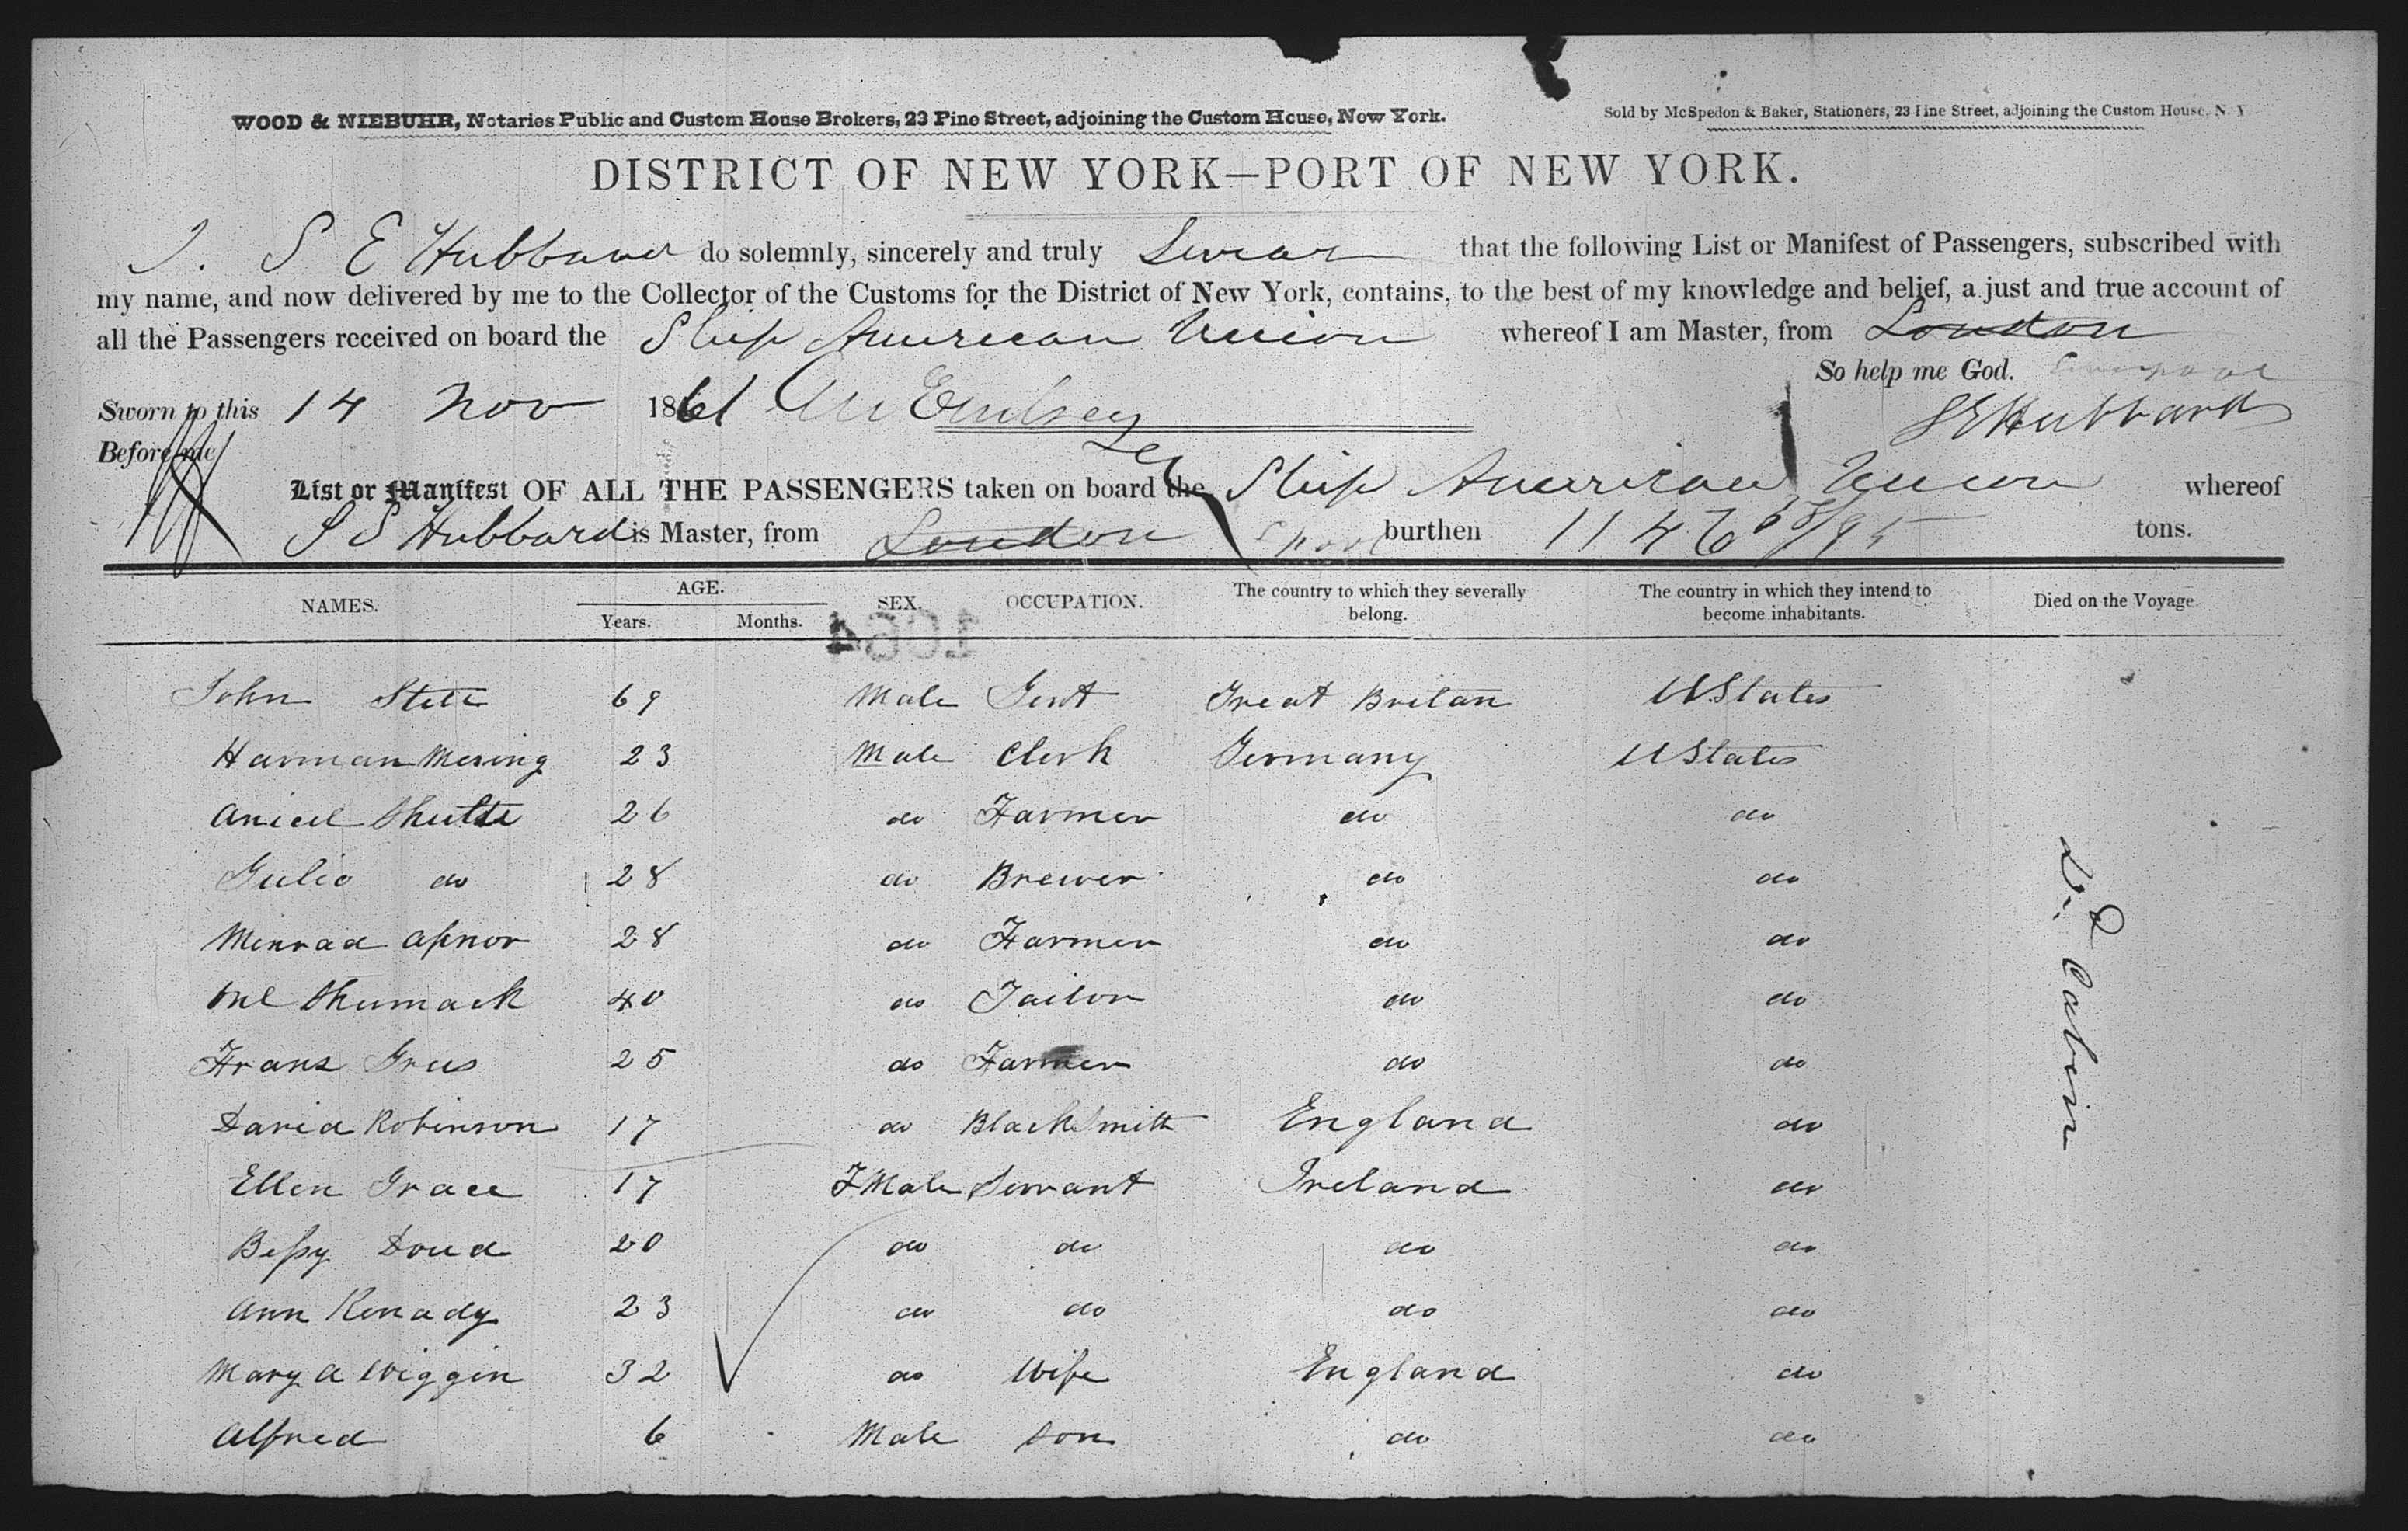 WOOD & NIEBUHR, Notaries Public and Custom House Brokers, 23 Pine Street, adjoining the Custom House, New York.
Sold by McSpedon & Baker, Stationers, 23 Pine Street, adjoining the Custom House, N. Y
DISTRICT OF NEW YORK—PORT OF NEW YORK.
I. S E Hubbard do solemnly, sincerely and truly Swear that the following List or Manifest of Passengers, subscribed with
my name, and now delivered by me to the Collector of the Customs for the District of New York, contains, to the best of my knowledge and belief, a just and true account of
all the Passengers received on board the Ship American Union whereof I am Master, from London
So help me God. Liverpool
Sworn to this 14 Nov 1861
S E Hubbard
Before me
List or Manifest OF ALL THE PASSENGERS taken on board the Ship American Union whereof
S E Hubbard is Master, from London Lpool burthen 1146 58/95 tons.
NAMES. AGE. SEX. OCCUPATION. The country to which they severally belong. The country in which they intend to become inhabitants. Died on the Voyage.
Years. Months.
1664
John Stell 69 Male Gent Great Britan U States
Harman Mesing 23 Male Clerk Germany U States
Shultz 26 do Farmer do do
Julio do 28 do Brewer do do
Menrad 28 do Farmer do do
Shumack 40 do Tailor do do
Frans Grus 25 do Farmer do do
David Robinson 17 do BlackSmith England do
Ellen Grace 17 FMale Servant Ireland do
Bessy Doud 20 do do do do
Ann Kenady 23 do do do do
Mary A Wiggin 32 do Wife England do
Alfred 6 Male Son do do
2d Cabin